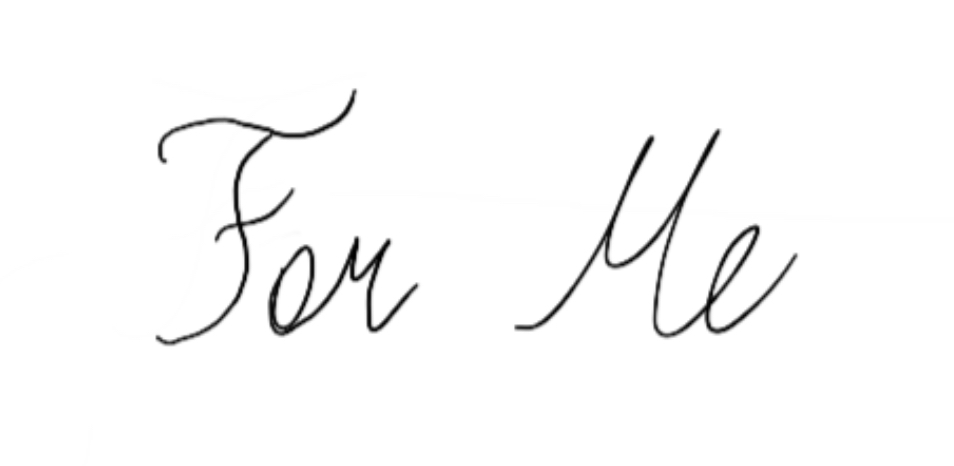 For Me